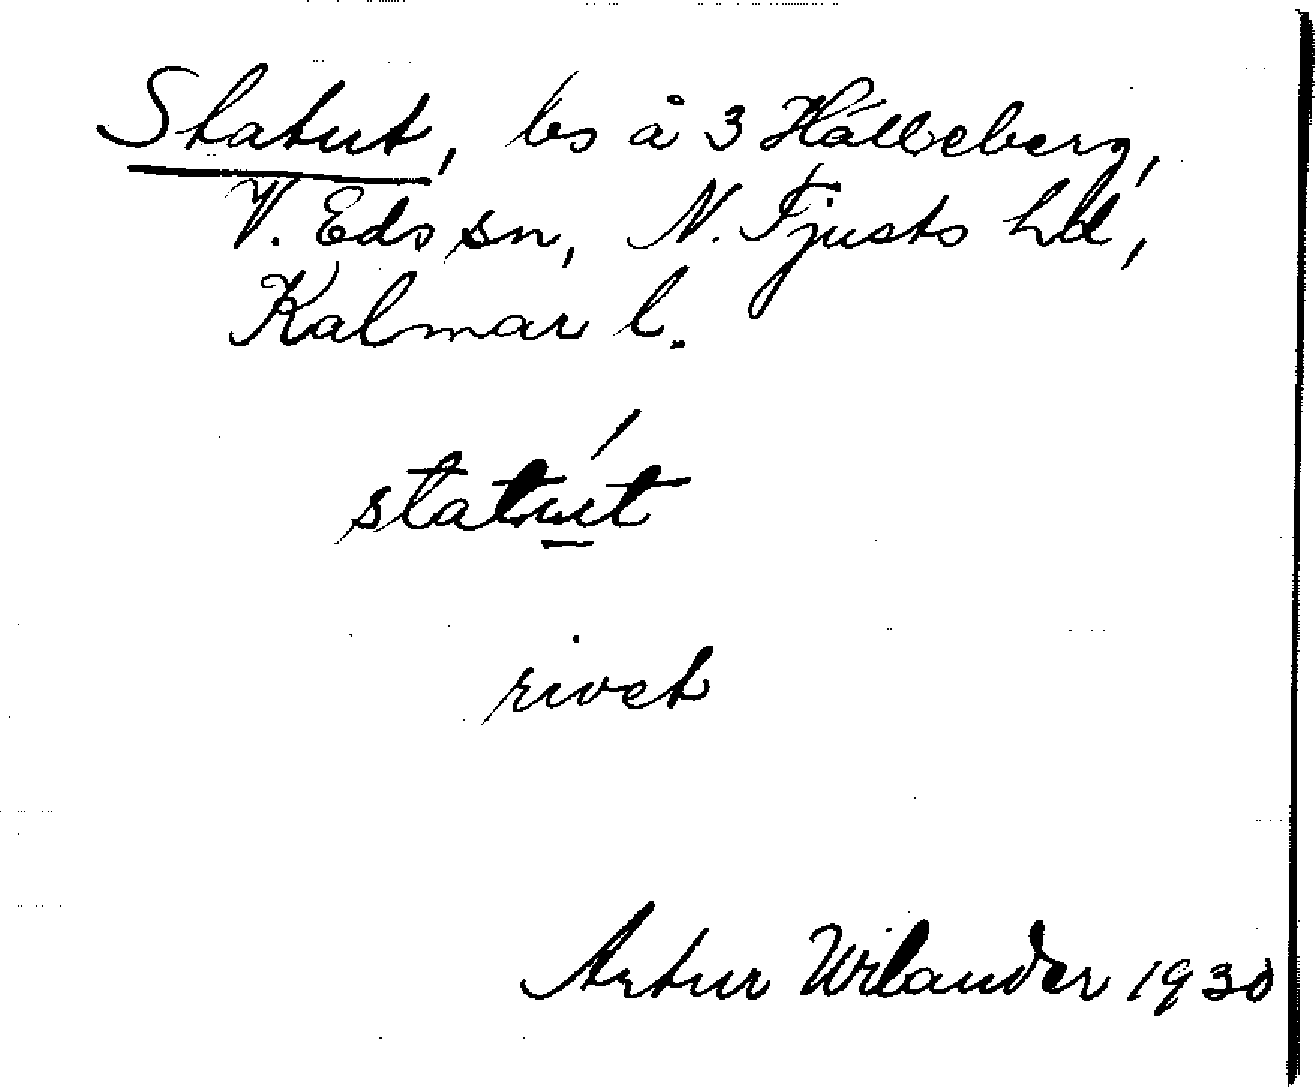 Statut, ls å 3 Hälleberg,
V. Eds sn, N. Tjusts hd,
Kalmar l.
statút
rivet
Artur Wilander 1930